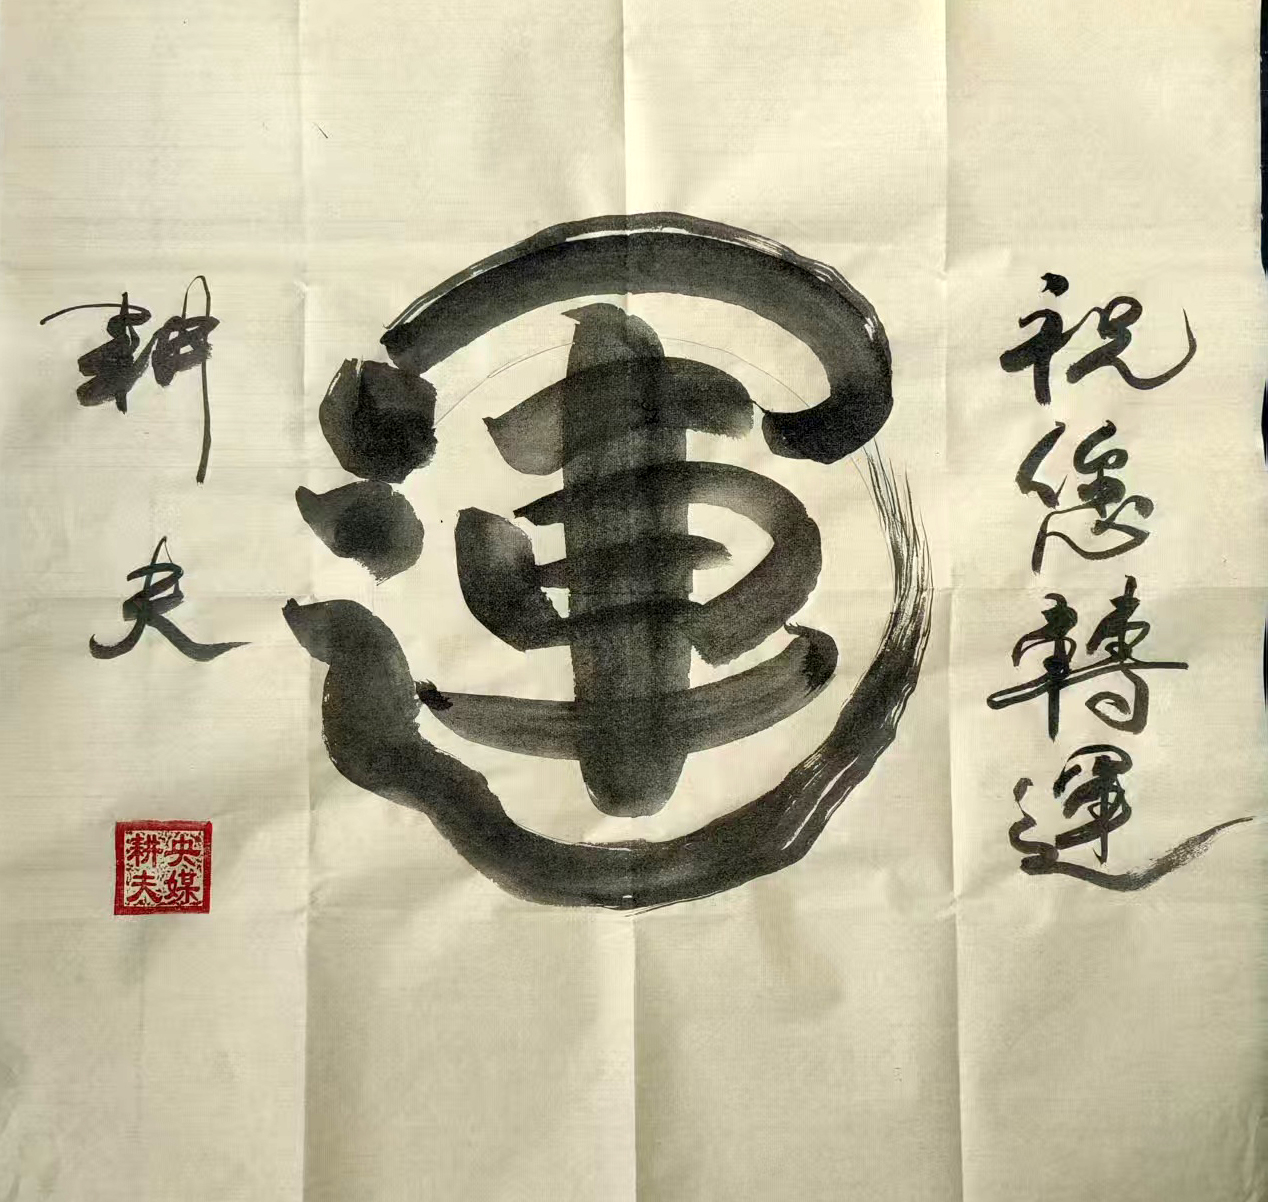 祝您轉運
運
耕夫
央媒
耕夫